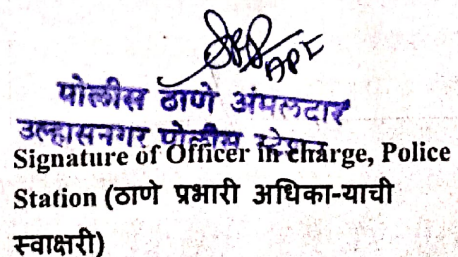 API
पोलीस ठाणे अंमलदार
उल्हासनगर पोलीस स्टेशन
Signature of Officer in charge, Police
Station (ठाणे प्रभारी अधिका-याची
स्वाक्षरी)